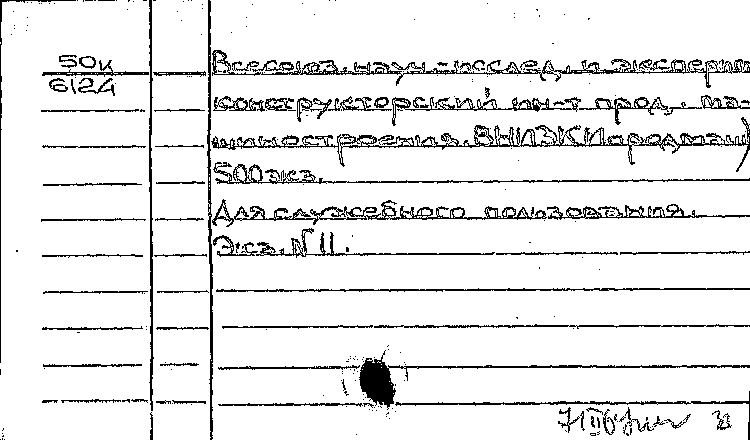 50к
6124
Всесоюз. науч.-исслед. и эксперим
конструкторский ин-т прод. ма-
шиностроения. ВНИЭКИпродмаш)
500 экз.
Для служебного пользования.
Экз. № 11.